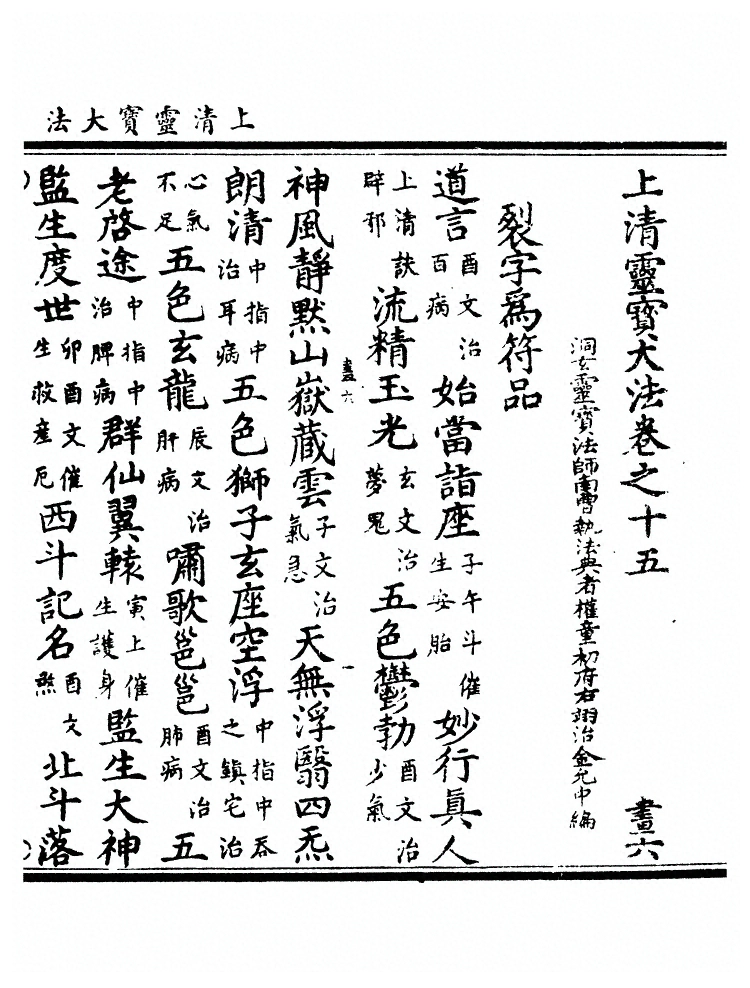 上清靈寶大法
上清靈寶大法卷之十五 畫六
洞玄靈寶法師南曹執法典者權童初府右翊治金允中編
裂字爲符品
道言酉文治百病始當詣座子午斗催生安胎妙行眞人
上清訣辟邪流精玉光玄文治夢鬼五色鬱勃酉文治少氣
畫六
神風靜默山嶽藏雲子文治氣急天無浮翳四炁
朗清中指中治耳病五色獅子玄座空浮中指中吞之鎮宅治
心氣不足五色玄龍辰文治肝病嘯歌邕邕酉文治肺病五
老啓途中指中治脾病群仙翼轅寅上催生護身監生大神
監生度世卯酉文催生救產厄西斗記名酉文煞北斗落